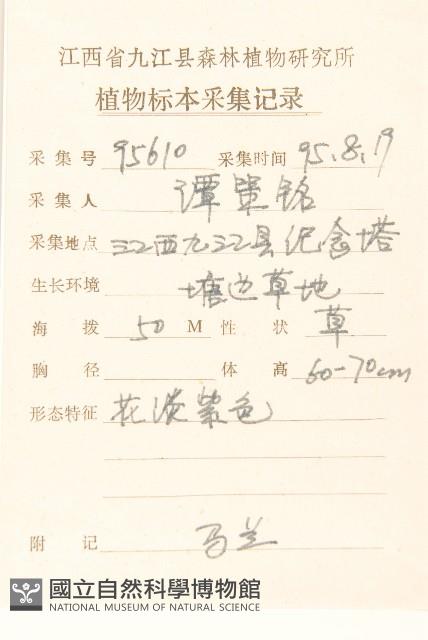 江西省九江县森林植物研究所
植物标本采集记录
采集号 95610 采集时间 95.8.19
采集人 谭策铭
采集地点 江西九江县纪念塔
生长环境 塘边草地
海拨 50 M 性状 草
胸径 体高 60-70cm
形态特征 花淡紫色
附记 马兰
國立自然科學博物館
NATIONAL MUSEUM OF NATURAL SCIENCE